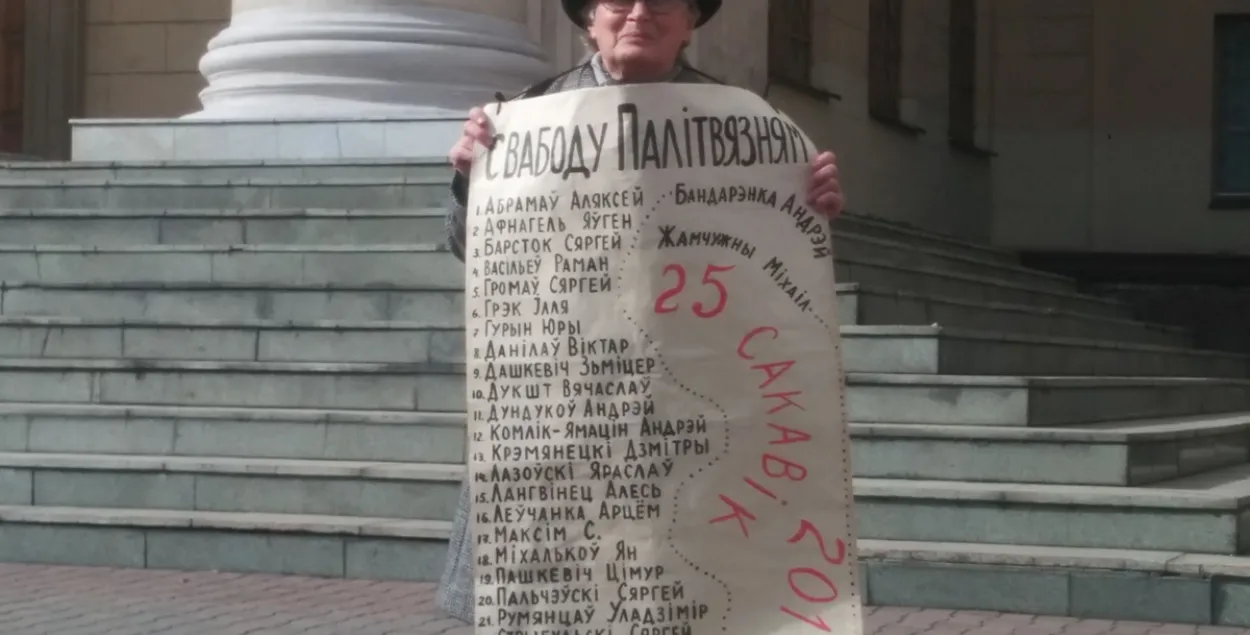 СВАБОДУ ПАЛІТВЯЗНЯМ
1. АБРАМАЎ АЛЯКСЕЙ
2 АФНАГЕЛЬ ЯЎГЕН
3. БАРСТОК СЯРГЕЙ
4. ВАСІЛЬЕЎ РАМАН
5. ГРОМАЎ СЯРГЕЙ
6. ГРЭК ІЛЛЯ
7 ГУРЫН ЮРЫ
8 ДАНІЛАЎ ВІКТАР
9. ДАШКЕВІЧ ЗЬМІЦЕР
10. ДУКШТ ВЯЧАСЛАЎ
11. ДУНДУКОЎ АНДРЭЙ
12. КОМЛІК-ЯМАЦІН АНДРЭЙ
13. КРЭМЯНЕЦКІ ДЗМІТРЫ
14. ЛАЗОЎСКІ ЯРАСЛАЎ
15. ЛАНГВІНЕЦ АЛЕСЬ
16. ЛЕЎЧАНКА АРЦЁМ
17. МАКСІМ С.
18. МІХАЛЬКОЎ ЯН
19. ПАШКЕВІЧ ЦІМУР
20. ПАЛЬЧЭЎСКІ СЯРГЕЙ
21. РУМЯНЦАЎ УЛАДЗІМІР
СЯРГЕЙ
БАНДАРЭНКА АНДРЭЙ
ЖАМЧУЖНЫ МІХАІЛ
25
САКАВІК
201